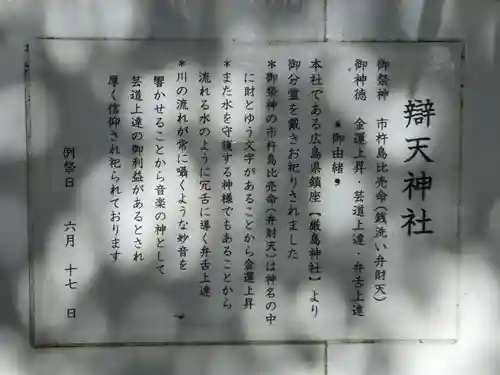 辯天神社
御祭神　市杵島比売命（銭洗い弁財天）
御神徳　金運上昇・芸道上達・弁舌上達
＊御由緒＊
本社である広島県鎮座【厳島神社】より
御分霊を戴きお祀りされました
＊御祭神の市杵島比売命（弁財天）は神名の中
に財とゆう文字があることから金運上昇
＊また水を守護する神様でもあることから
流れる水のように冗舌に導く弁舌上達
＊川の流れが常に囁くような妙音を
響かせることから音楽の神として
芸道上達の御利益があるとされ
厚く信仰され祀られております
例祭日　六月　十七　日